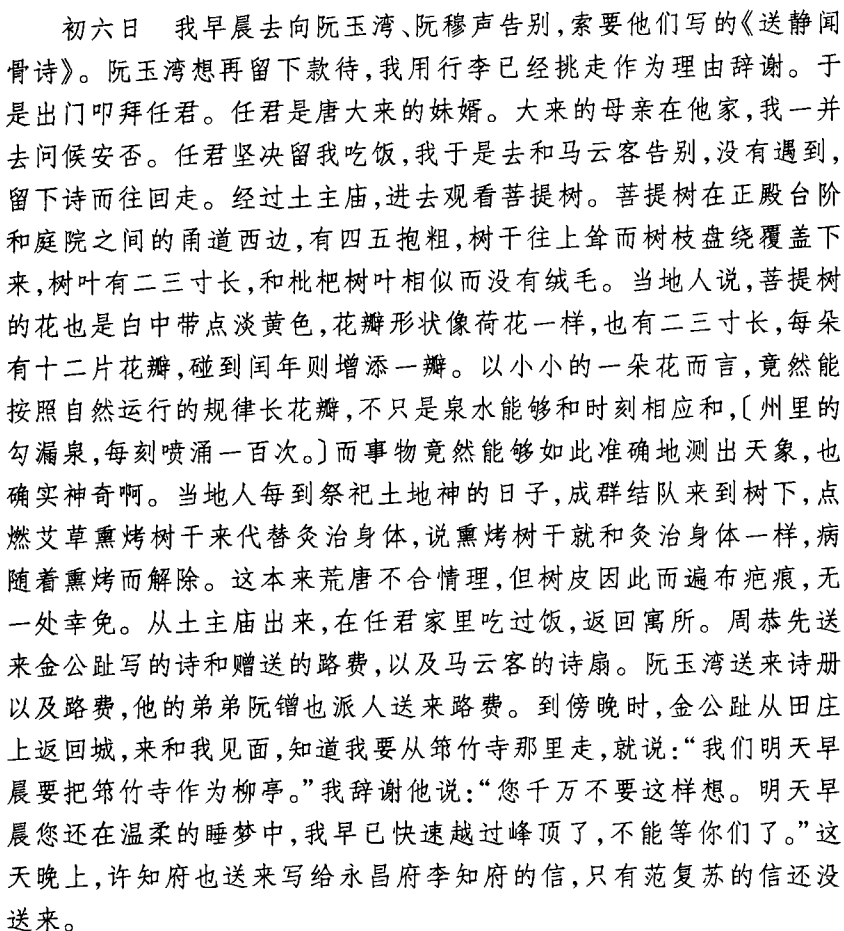 初六日　我早晨去向阮玉湾、阮穆声告别,索要他们写的《送静闻
骨诗》。阮玉湾想再留下款待,我用行李已经挑走作为理由辞谢。于
是出门叩拜任君。任君是唐大来的妹婿。大来的母亲在他家,我一并
去问候安否。任君坚决留我吃饭,我于是去和马云客告别,没有遇到,
留下诗而往回走。经过土主庙,进去观看菩提树。菩提树在正殿台阶
和庭院之间的甬道西边,有四五抱粗,树干往上耸而树枝盘绕覆盖下
来,树叶有二三寸长,和枇杷树叶相似而没有绒毛。当地人说,菩提树
的花也是白中带点淡黄色,花瓣形状像荷花一样,也有二三寸长,每朵
有十二片花瓣,碰到闰年则增添一瓣。以小小的一朵花而言,竟然能
按照自然运行的规律长花瓣,不只是泉水能够和时刻相应和,〔州里的
勾漏泉,每刻喷涌一百次。〕而事物竟然能够如此准确地测出天象,也
确实神奇啊。当地人每到祭祀土地神的日子,成群结队来到树下,点
燃艾草熏烤树干来代替灸治身体,说熏烤树干就和灸治身体一样,病
随着熏烤而解除。这本来荒唐不合情理,但树皮因此而遍布疤痕,无
一处幸免。从土主庙出来,在任君家里吃过饭,返回寓所。周恭先送
来金公趾写的诗和赠送的路费,以及马云客的诗扇。阮玉湾送来诗册
以及路费,他的弟弟阮镨也派人送来路费。到傍晚时,金公趾从田庄
上返回城,来和我见面,知道我要从筇竹寺那里走,就说:“我们明天早
晨要把筇竹寺作为柳亭。”我辞谢他说:“您千万不要这样想。明天早
晨您还在温柔的睡梦中,我早已快速越过峰顶了,不能等你们了。”这
天晚上,许知府也送来写给永昌府李知府的信,只有范复苏的信还没
送来。